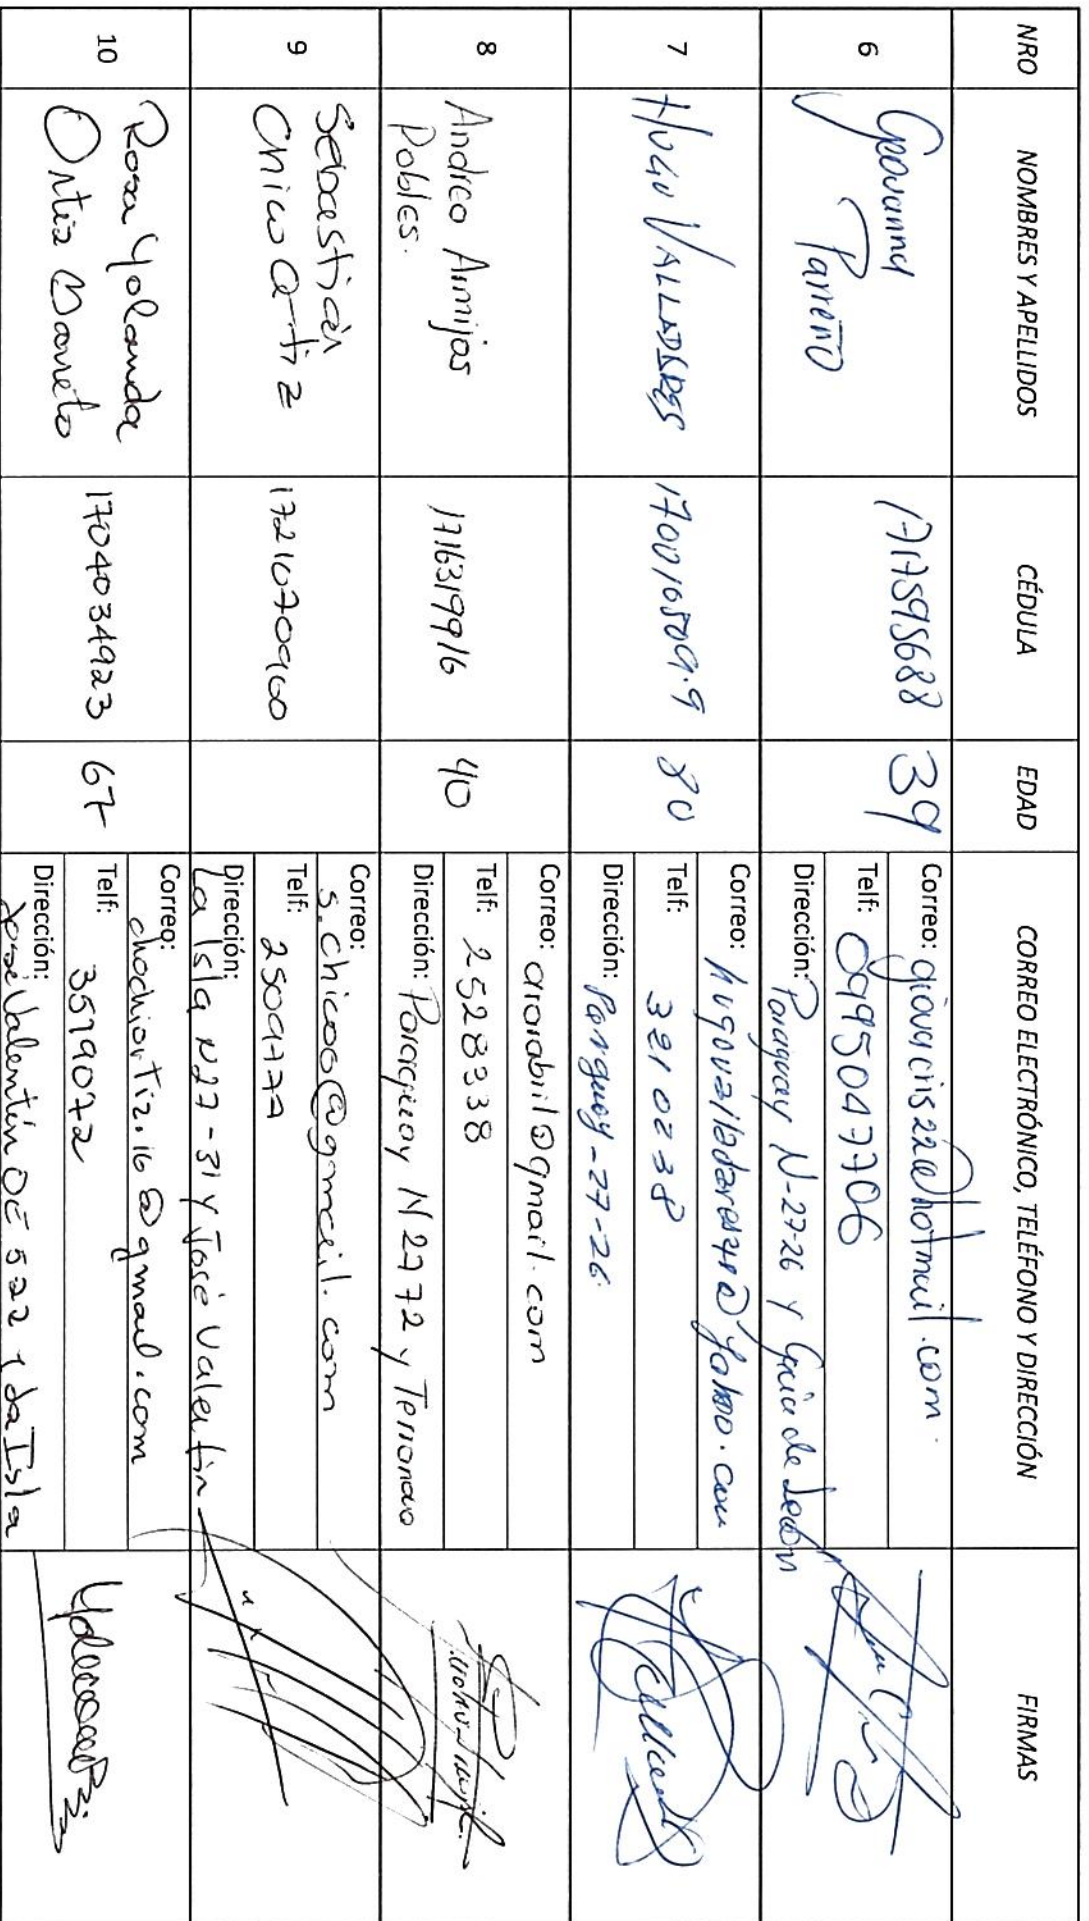 NRO NOMBRES Y APELLIDOS CÉDULA EDAD CORREO ELECTRÓNICO, TELÉFONO Y DIRECCIÓN FIRMAS
6 Geovanny Parreño 1717595688 39
Correo: giovacris22@hotmail.com.
Telf: 0995047706
Dirección: Paraguay N-27-26 y
7 Hugo VALLADARES 80
Correo:
Telf: 321 02 38
Dirección: -27-26.
8 Andrea Armijos
Robles. 1716319916 40
Correo: ararabril@gmail.com
Telf: 2528338
Dirección: Paraguay N2772 y
9 Sebastián
Chico Ortiz
Correo: s.chicoo@gmail.com
Telf:
Dirección: La Isla N27-31 y José Valentín
10 Rosa Yolanda
Ortiz Barreto 1704034923 67
Correo: chochiortiz.16@gmail.com
Telf: 3519072
Dirección: José Valentín OE 522 y La Isla